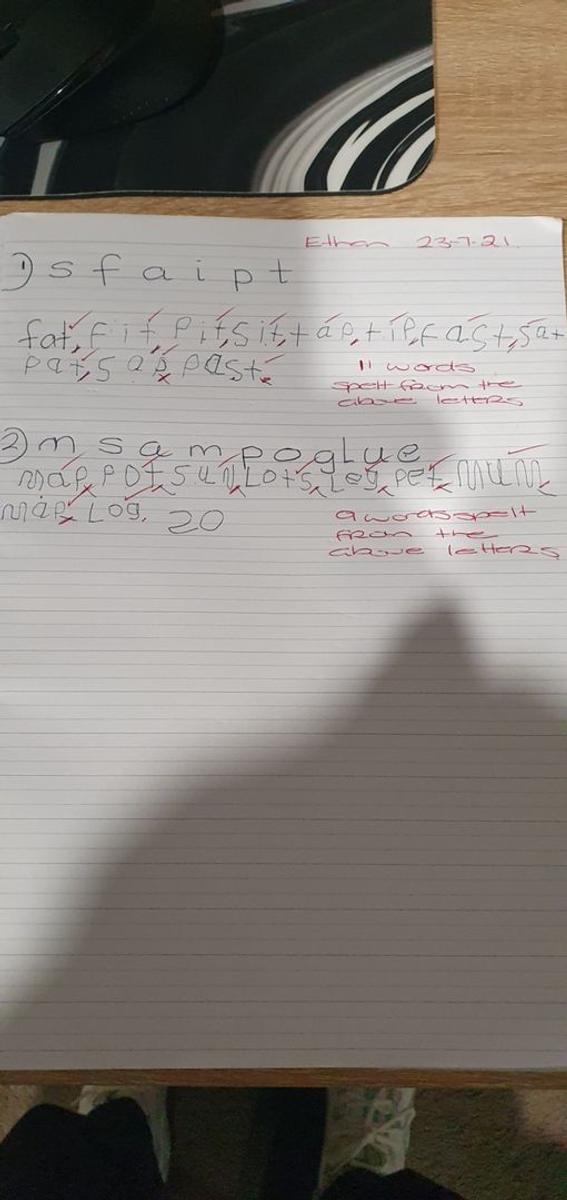 Ethan 23-7-21.
1) s f a i p t
fat, fit, Pit, sit, tap, tip, fast, sat
pat, sap, past.
11 words
spelt from the
above letters
2) m s a m p o g l u e
map, pot, sun, Lots, Leg, pet, mum,
map, Log. 20
9 words spelt
from the
above letters